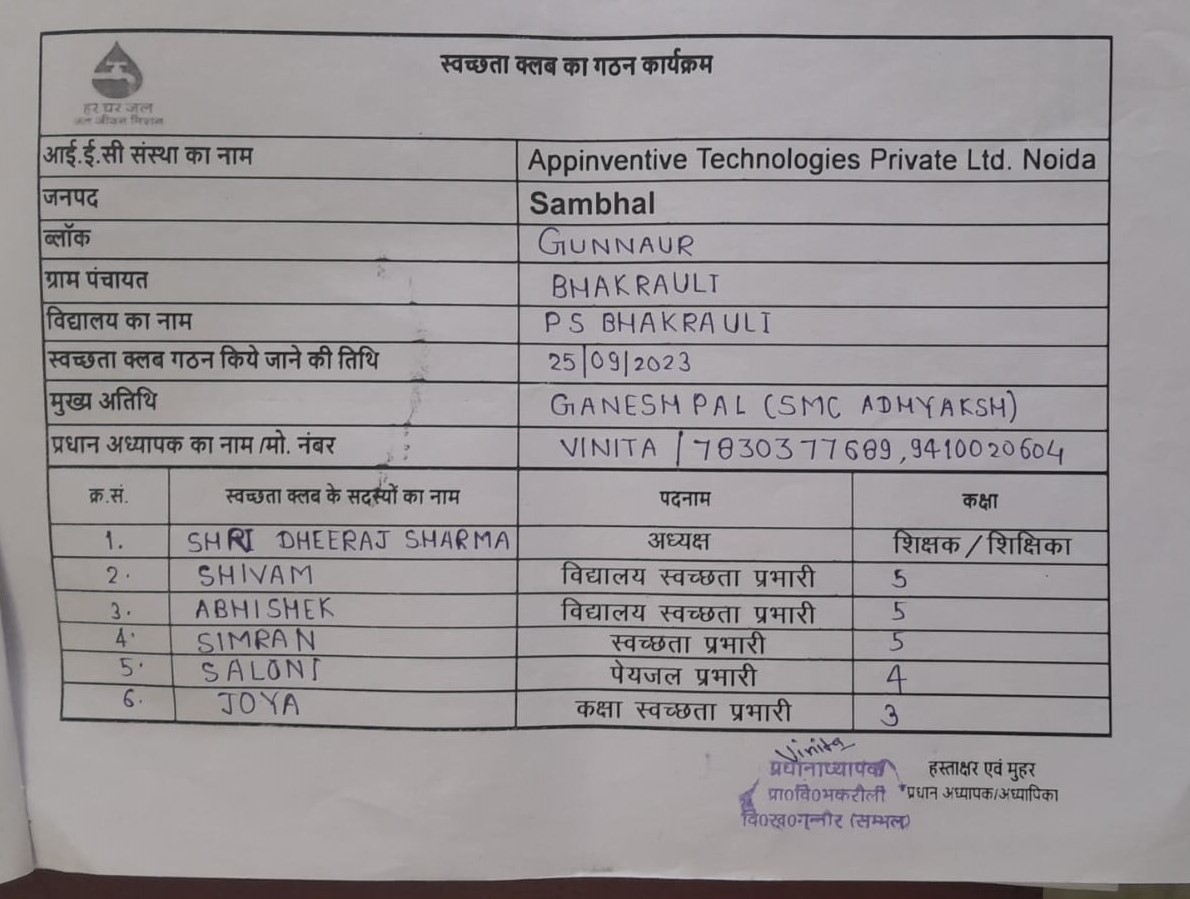 स्वच्छता क्लब का गठन कार्यक्रम
हर घर जल
जल जीवन मिशन
आई.ई.सी संस्था का नाम Appinventive Technologies Private Ltd. Noida
जनपद Sambhal
ब्लॉक GUNNAUR
ग्राम पंचायत BHAKRAULI
विद्यालय का नाम PS BHAKRAULI
स्वच्छता क्लब गठन किये जाने की तिथि 25/09/2023
मुख्य अतिथि GANESH PAL (SMC ADHYAKSH)
प्रधान अध्यापक का नाम /मो. नंबर VINITA / 7830377689, 9410020604
क्र.सं. स्वच्छता क्लब के सदस्यों का नाम पदनाम कक्षा
1. SHRI DHEERAJ SHARMA अध्यक्ष शिक्षक / शिक्षिका
2. SHIVAM विद्यालय स्वच्छता प्रभारी 5
3. ABHISHEK विद्यालय स्वच्छता प्रभारी 5
4. SIMRAN स्वच्छता प्रभारी 5
5. SALONI पेयजल प्रभारी 4
6. JOYA कक्षा स्वच्छता प्रभारी 3
Vinita
प्रधानाध्यापक हस्ताक्षर एवं मुहर
प्रा०वि०भकरौली प्रधान अध्यापक/अध्यापिका
वि०ख०गुन्नौर (सम्भल)